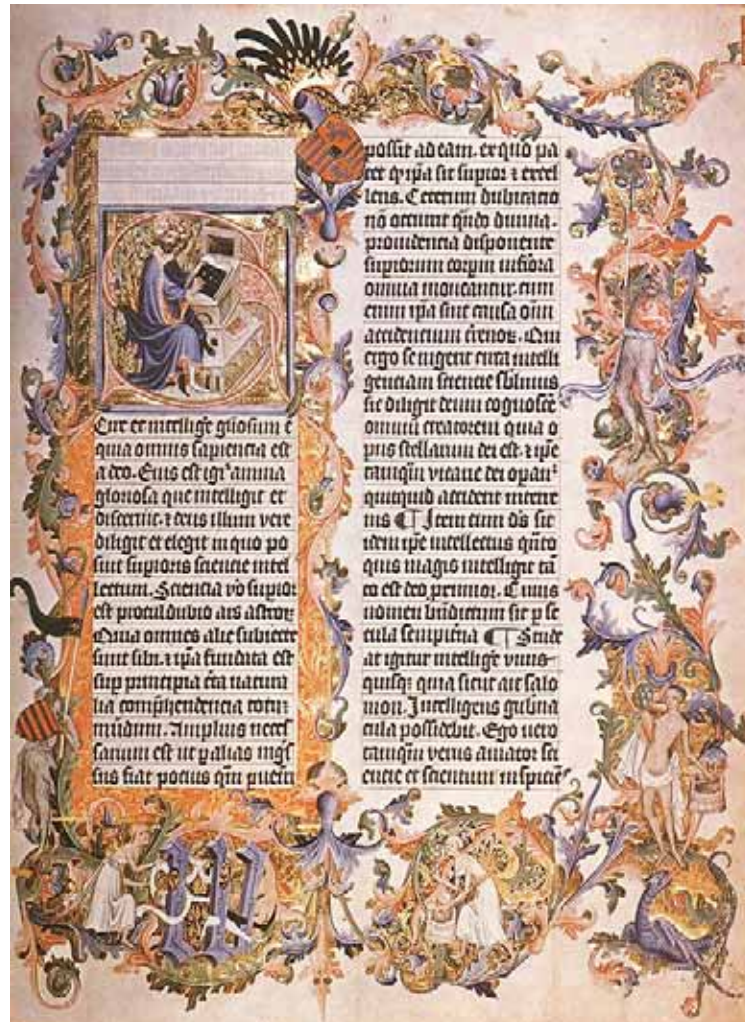 Cire et intellige gliosum ē
quia omnis sapiencia est
a deo. Eius est igit' anima
gloriosa que intelligit et
discernit. ⁊ deus illum vere
diligit et elegit in quo po
suit supioris sciencie intel
lectum. Sciencia v̊o supior
est proculdubio ars astroꝝ
Quia omnes alie subiecte
sunt sibi. ⁊ ipā fundata est
sup principia c̄ta natura
lia comp̄hendencia totuꝫ
mūdum. Amplius neces
sarium est ut p alias
fiat pocius qm̄
possit ad eam. ex quo pa
tet ꝙ ip̄a sit supior ⁊ excel
lens. Ceterum dubitacio
nō occurrit diuina
prouidencia disponente
supiorum corpm inf̄iora
omnia moueantur. cum
enim ip̄a sint causa oīm
accidentium t̄renoꝝ. Qui
ergo se ingerit circa intelli
genciam sciencie sblimis
sic diligit deum cognosc̄e
omniū creatorem quia o
pus stellarum dei est. ⁊ ip̄e
tanqm̄ vicarie dei opant'
quicquid accident
¶ Item cum d̄s sit
idem ip̄e intellectus qūto
quis magis intelligit tā
to est deo ꝓximior. Cuius
nomen bn̄dictum sit p se
cula sempit̄na ¶ Stude
at igitur intelliḡe vnus
quisqꝫ quia sicut ait salo
mon. Intelligens gub̄na
cula possidebit. Ego vero
tanqm̄ verus amator sci
encie et scientum inspiciēs